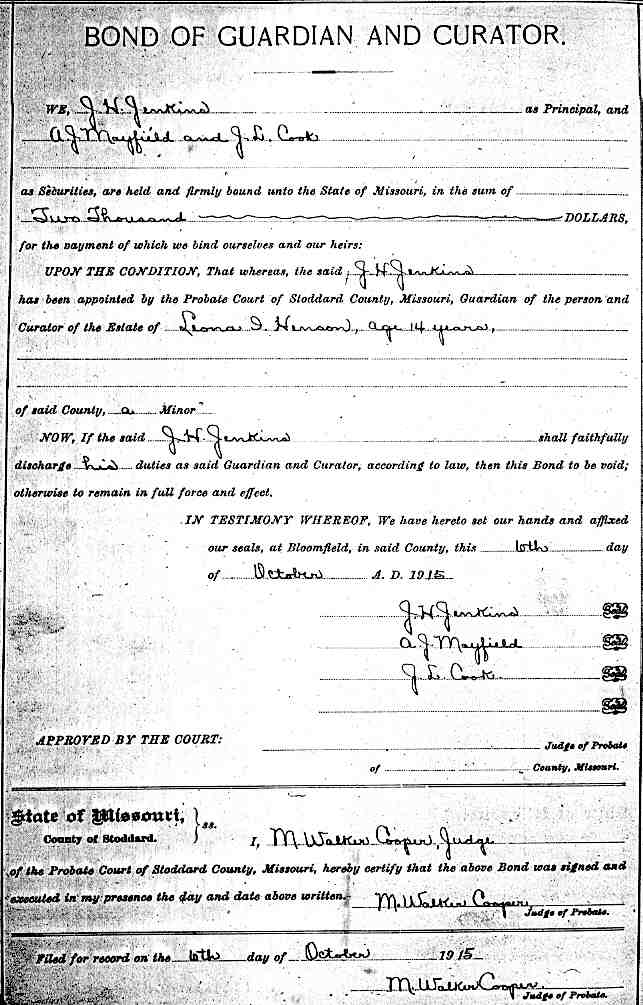 BOND OF GUARDIAN AND CURATOR.
WE, J. H. Jenkins as Principal, and
A J Mayfield and J. L. Cook
as Securities, are held and firmly bound unto the State of Missouri, in the sum of
Two Thousand DOLLARS,
for the payment of which we bind ourselves and our heirs:
UPON THE CONDITION, That whereas, the said, J H Jenkins
has been appointed by the Probate Court of Stoddard County, Missouri, Guardian of the person and
Curator of the Estate of Leona I. Henson, age 14 years,
of said County, a Minor
NOW, If the said J. H. Jenkins shall faithfully
discharge his duties as said Guardian and Curator, according to law, then this Bond to be void;
otherwise to remain in full force and effect.
IN TESTIMONY WHEREOF, We have hereto set our hands and affixed
our seals, at Bloomfield, in said County, this 6th day
of October A. D. 1915
J H Jenkins Seal
A. J. Mayfield Seal
J L Cook. Seal
Seal
APPROVED BY THE COURT:
Judge of Probate
of County, Missouri.
State of Missouri,
County of Stoddard. } ss.
I, M. Walker Cooper, Judge
of the Probate Court of Stoddard County, Missouri, hereby certify that the above Bond was signed and
executed in my presence the day and date above written. M. Walker Cooper,
Judge of Probate.
Filed for record on the 6th day of October 1915
M. Walker Cooper.
Judge of Probate.